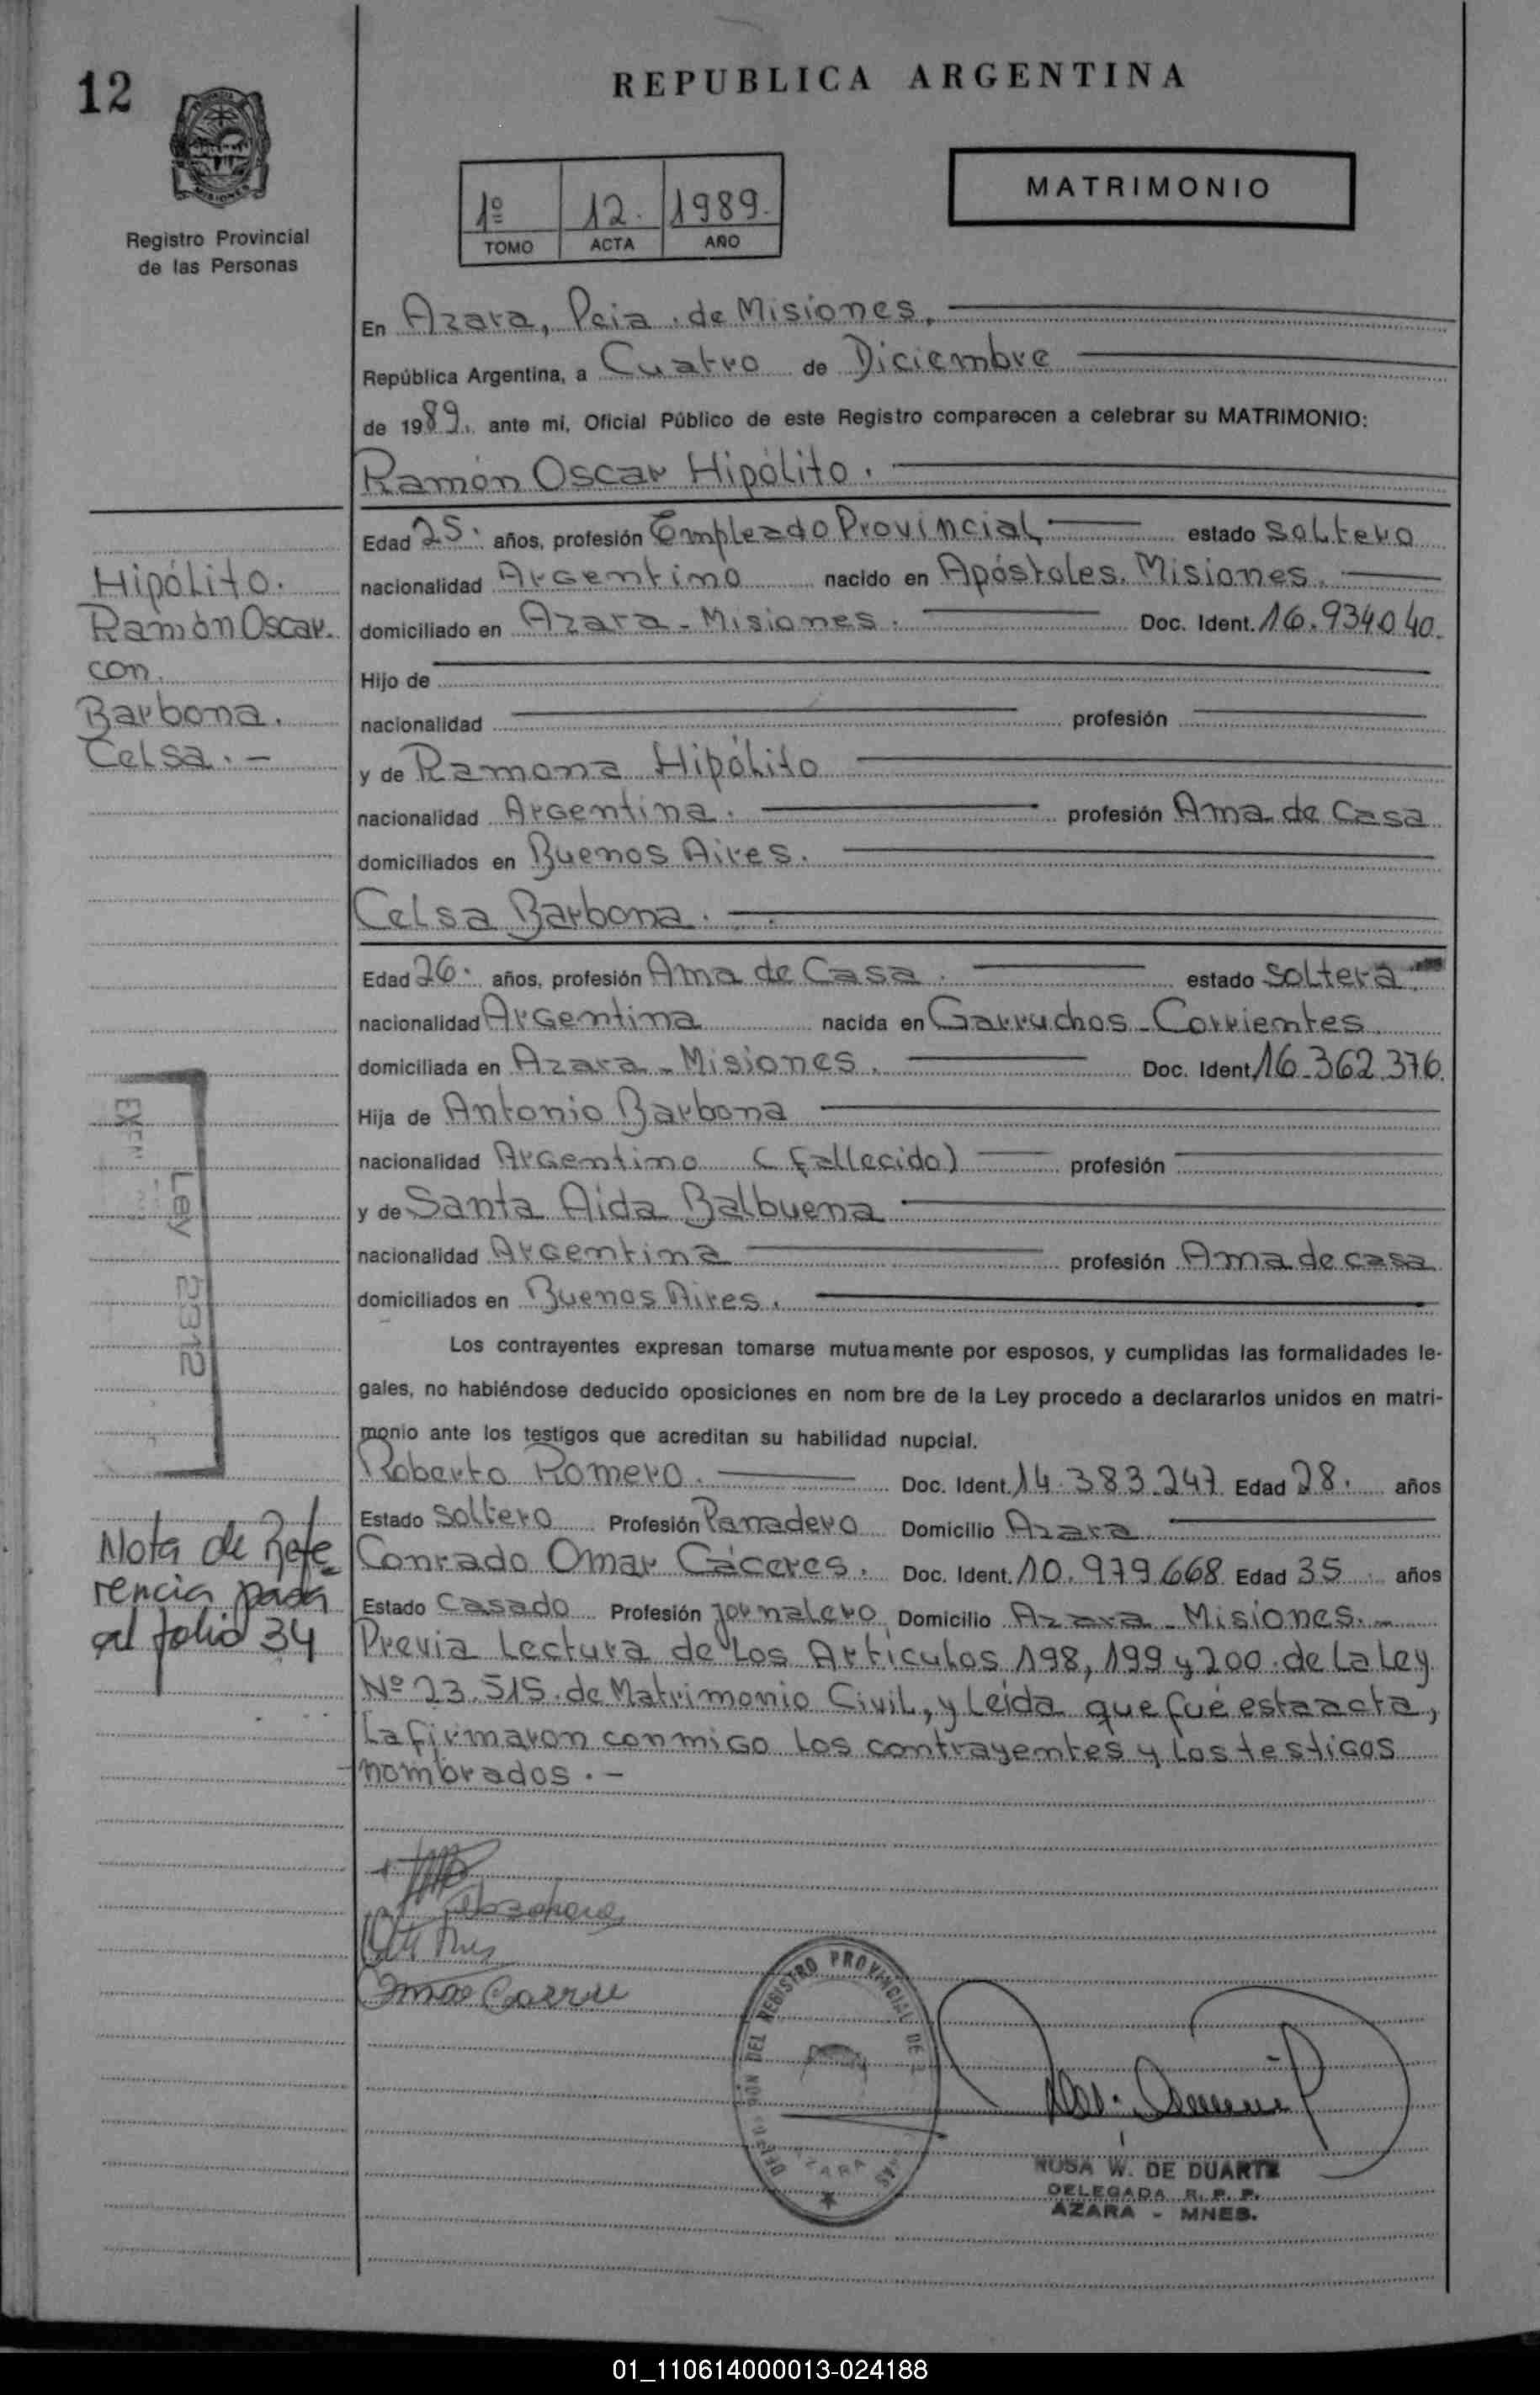 12
REPUBLICA ARGENTINA
MISIONES
Registro Provincial
de las Personas
1º 12. 1989.
TOMO ACTA AÑO
MATRIMONIO
En Azara, Pcia. de Misiones.
República Argentina, a Cuatro de Diciembre
de 1989. ante mi, Oficial Público de este Registro comparecen a celebrar su MATRIMONIO:
Ramón Oscar Hipólito.
Edad 25. años, profesión Empleado Provincial estado Soltero
nacionalidad Argentino nacido en Apóstoles. Misiones.
domiciliado en Azara - Misiones. Doc. Ident. 16.934040.
Hijo de
nacionalidad profesión
y de Ramona Hipólito
nacionalidad Argentina. profesión Ama de Casa
domiciliados en Buenos Aires.
Celsa Barbona.
Edad 26. años, profesión Ama de Casa. estado Soltera.
nacionalidad Argentina nacida en Garruchos - Corrientes
domiciliada en Azara - Misiones. Doc. Ident. 16.362.376.
Hija de Antonio Barbona
nacionalidad Argentino (fallecido) profesión
y de Santa Aida Balbuena
nacionalidad Argentina profesión Ama de casa
domiciliados en Buenos Aires.
Los contrayentes expresan tomarse mutuamente por esposos, y cumplidas las formalidades le-
gales, no habiéndose deducido oposiciones en nom bre de la Ley procedo a declararlos unidos en matri-
monio ante los testigos que acreditan su habilidad nupcial.
Roberto Romero. Doc. Ident. 14.383.247 Edad 28. años
Estado Soltero Profesión Panadero Domicilio Azara
Conrado Omar Cáceres. Doc. Ident. 10.979.668 Edad 35 años
Estado Casado Profesión Jornalero Domicilio Azara - Misiones.-
Previa Lectura de los Artículos 198, 199 y 200 de la Ley
Nº 23.515. de Matrimonio Civil, y Leída que fué esta acta,
la firmaron conmigo los contrayentes y los testigos
nombrados.-
Hipólito.
Ramón Oscar.
con
Barbona.
Celsa.-
Ley 2312
Nota de Refe
rencia pasa
al folio 34
DEL REGISTRO PROVINCIAL DE
AZARA
ROSA W. DE DUARTE
DELEGADA R. P. P.
AZARA - MNES.
01_110614000013-024188